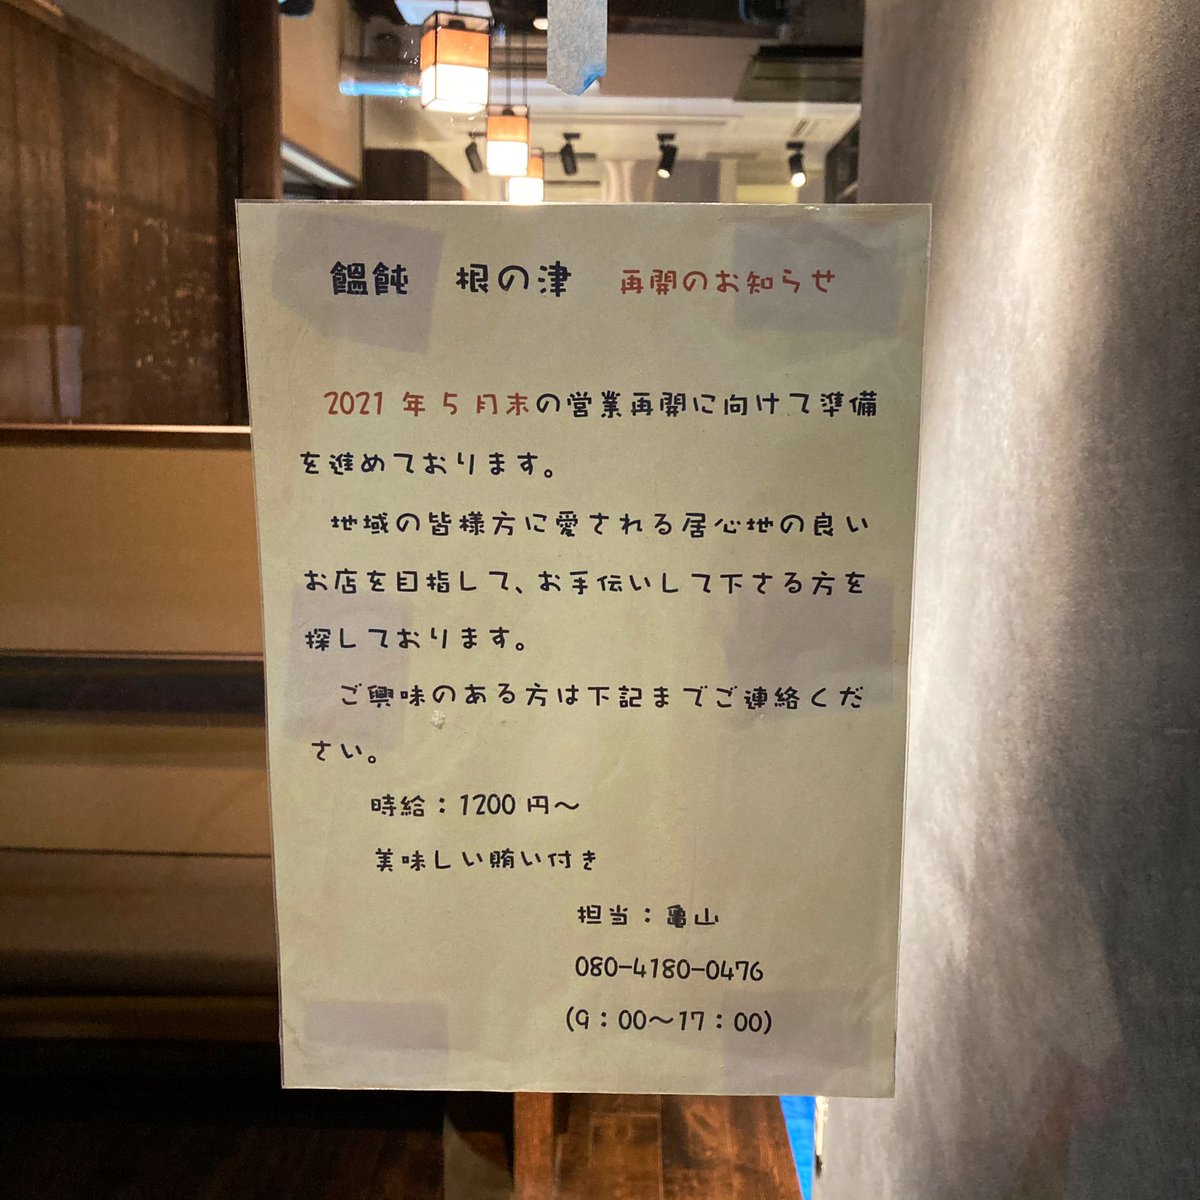 饂飩 根の津 再開のお知らせ
2021年5月末の営業再開に向けて準備
を進めております。
地域の皆様方に愛される居心地の良い
お店を目指して、お手伝いして下さる方を
探しております。
ご興味のある方は下記までご連絡くだ
さい。
時給：1200円〜
美味しい賄い付き
担当：亀山
080-4180-0476
(9：00〜17：00)